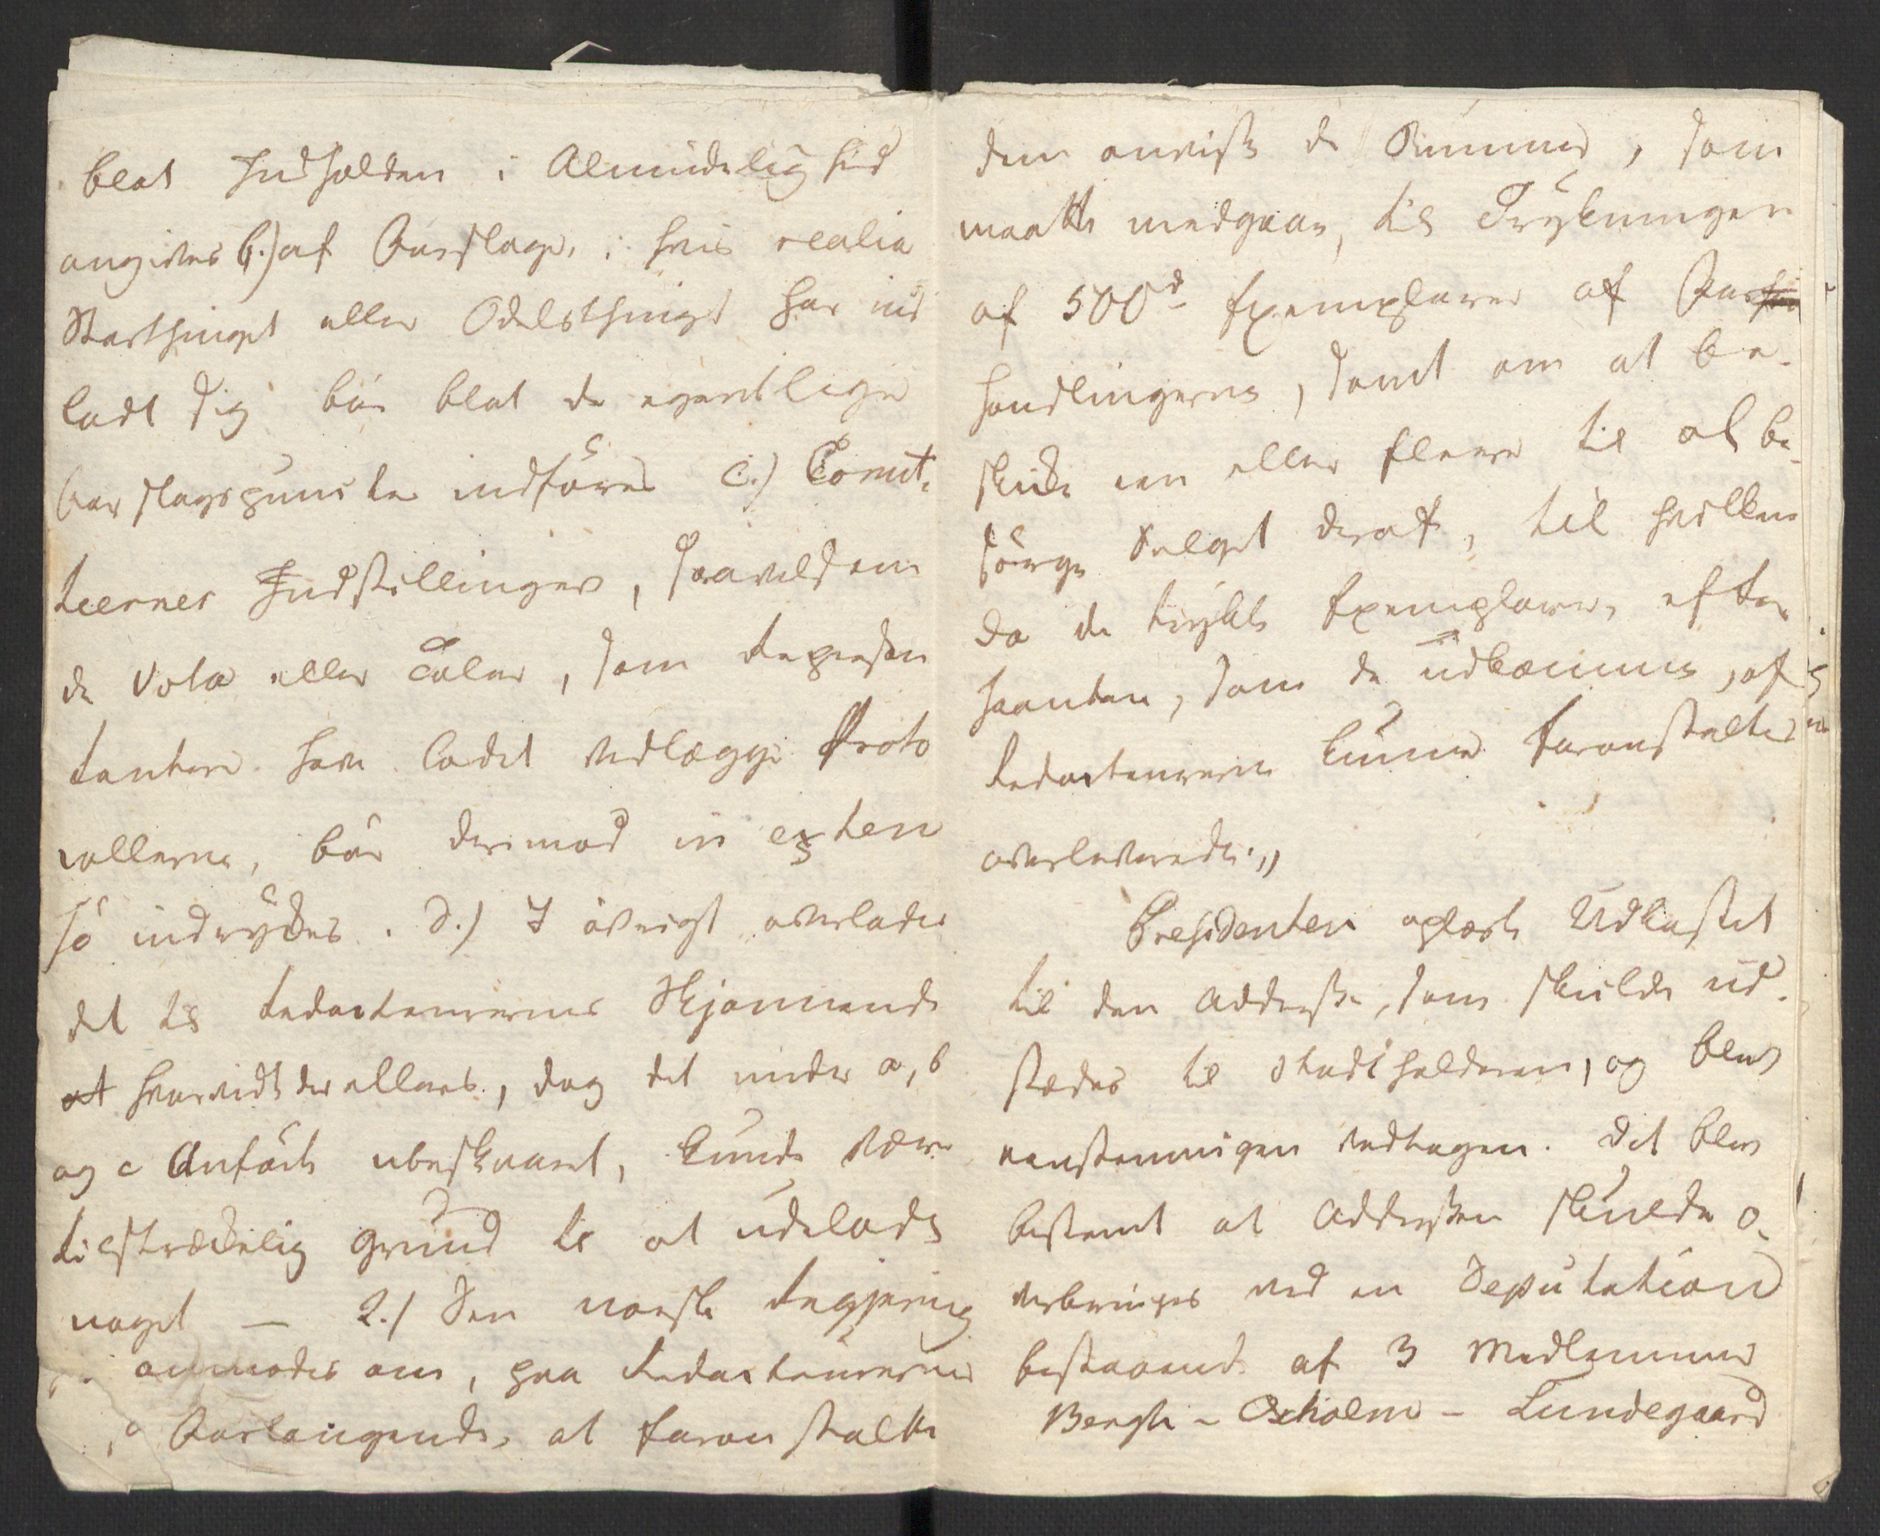 blot Indholden i Almindelighed
angives b.) af Forslage, i hvis realia
Storthinget eller Odelsthinget har ind
ladt sig bør blot de egentlige
Forslagspuncter indføres c.) Comit-
teernes Indstillinger, saavelsom
de Vota eller Taler, som Repræsen
tantere have ladet vedlægge Proto
collerne, bør derimod in exten
so indrykkes. d.) I øvrigt overlades
det til Redacteurernes Skjønnende
hvorvidt der ellers, dog det under a, b
og c Anførte ubeskaaret, kunde være
tilstrækkelig Grund til at udelade
noget — 2.) Den norske Regjering
anmodes om, paa Redacteurernes
Forlangende, at foranstalte
dem anviist de Summer, som
maatte medgaae, til Trykningen
af 500de Exemplarer af For
handlingerne, samt om at be-
skikke een eller fleere til at be-
sørge Salget deraf, til hvilken
da de trykte Exemplarer, efter
haanden, som de udkomme, af
Redacteurerne kunne foranstaltes
overleverede.,,
Præsidenten oplæste Udkastet
til den Addresse, som skulde ud-
stædes til Stadtholderen, og blev
eenstemmigen vedtagen. Det blev
bestemt at Addressen skulde o-
verbringes ved en Deputation
bestaaende af 3 Medlemmer
Bergh - Oxholm - Lundegaard